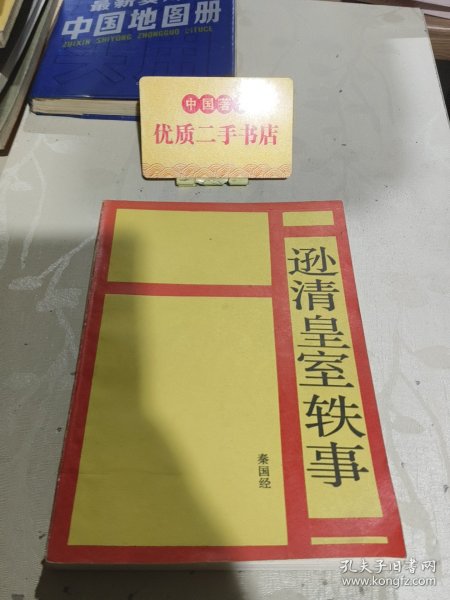 中国地图册
ZUIXIN SHIYONG ZHONGGUO DITUCE
中国著
优质二手书店
逊清皇室轶事
秦国经
孔夫子旧书网
www.kongfz.com